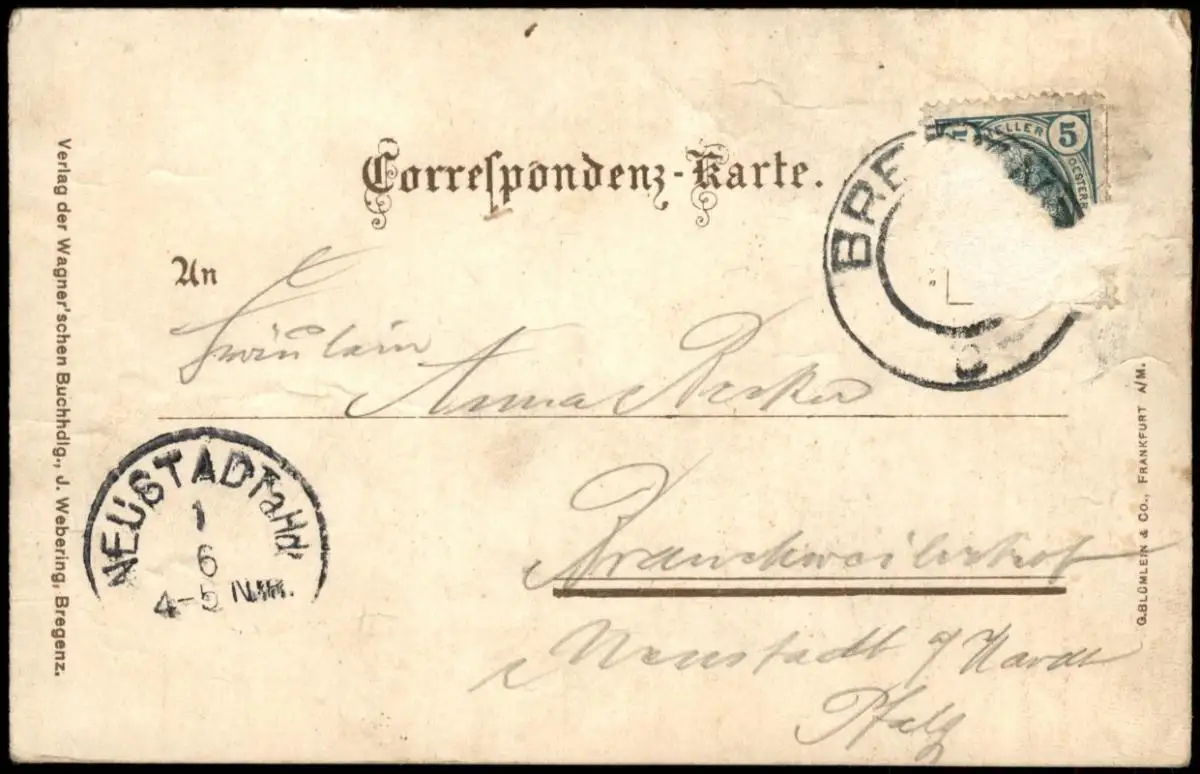 Correspondenz-Karte.
An
Fräulein Anna Becker
Branchweilerhof
Neustadt a/Hardt
Pfalz
Verlag der Wagner'schen Buchhdlg., J. Webering, Bregenz.
G. BLÜMLEIN & CO., FRANKFURT A/M.
NEUSTADT a.Hdt
1
6
4-5 Nm.
BRE
HELLER 5
OESTERR